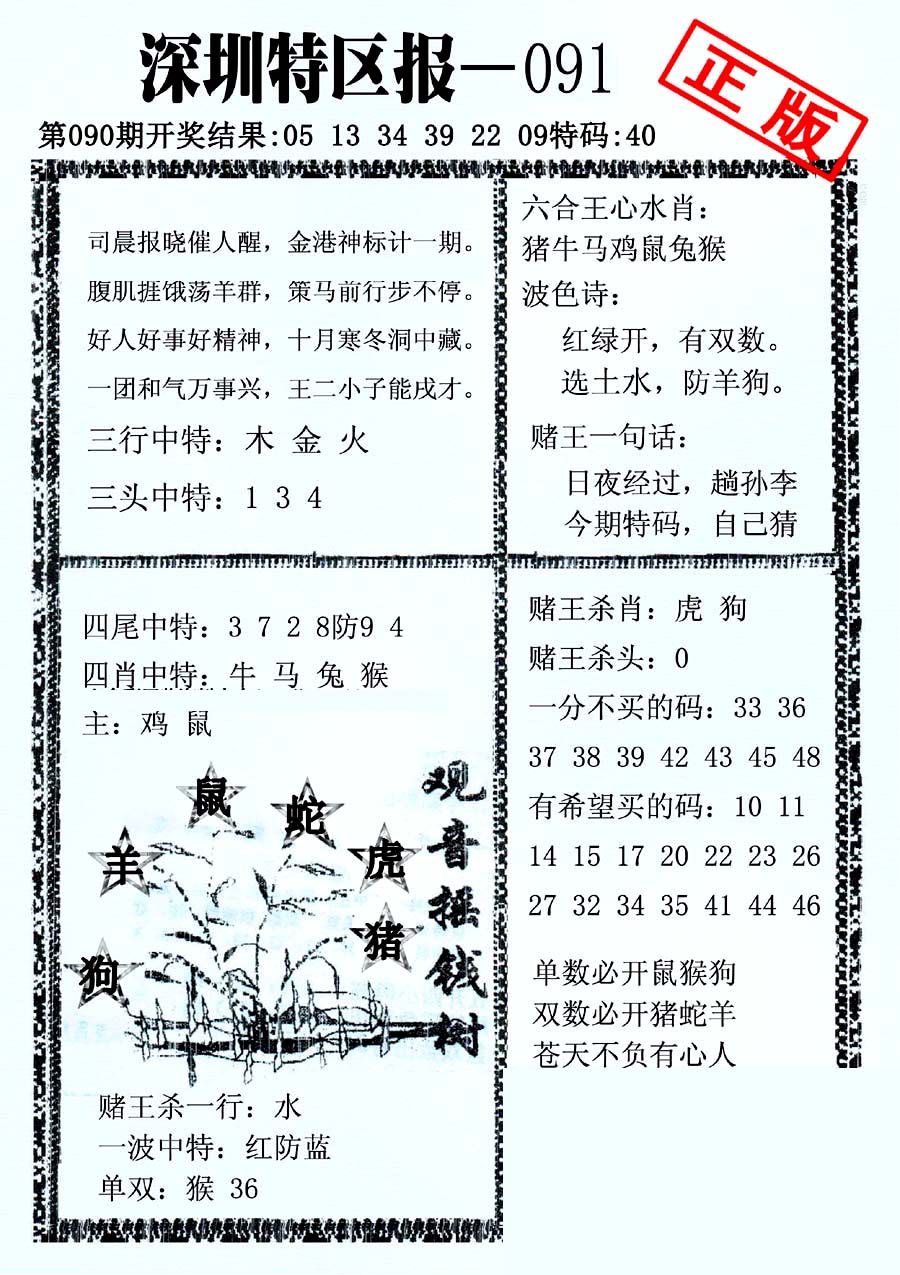 深圳特区报—091
正版
第090期开奖结果:05 13 34 39 22 09特码:40
司晨报晓催人醒，金港神标计一期。
腹肌捱饿荡羊群，策马前行步不停。
好人好事好精神，十月寒冬洞中藏。
一团和气万事兴，王二小子能戌才。
三行中特：木 金 火
三头中特：1 3 4
六合王心水肖：
猪牛马鸡鼠兔猴
波色诗：
红绿开，有双数。
选土水，防羊狗。
赌王一句话：
日夜经过，趟孙李
今期特码，自己猜
四尾中特：3 7 2 8防9 4
四肖中特：牛 马 兔 猴
主：鸡 鼠
鼠
蛇
羊
虎
猪
狗
观音摇钱树
赌王杀一行：水
一波中特：红防蓝
单双：猴 36
赌王杀肖：虎 狗
赌王杀头：0
一分不买的码：33 36
37 38 39 42 43 45 48
有希望买的码：10 11
14 15 17 20 22 23 26
27 32 34 35 41 44 46
单数必开鼠猴狗
双数必开猪蛇羊
苍天不负有心人